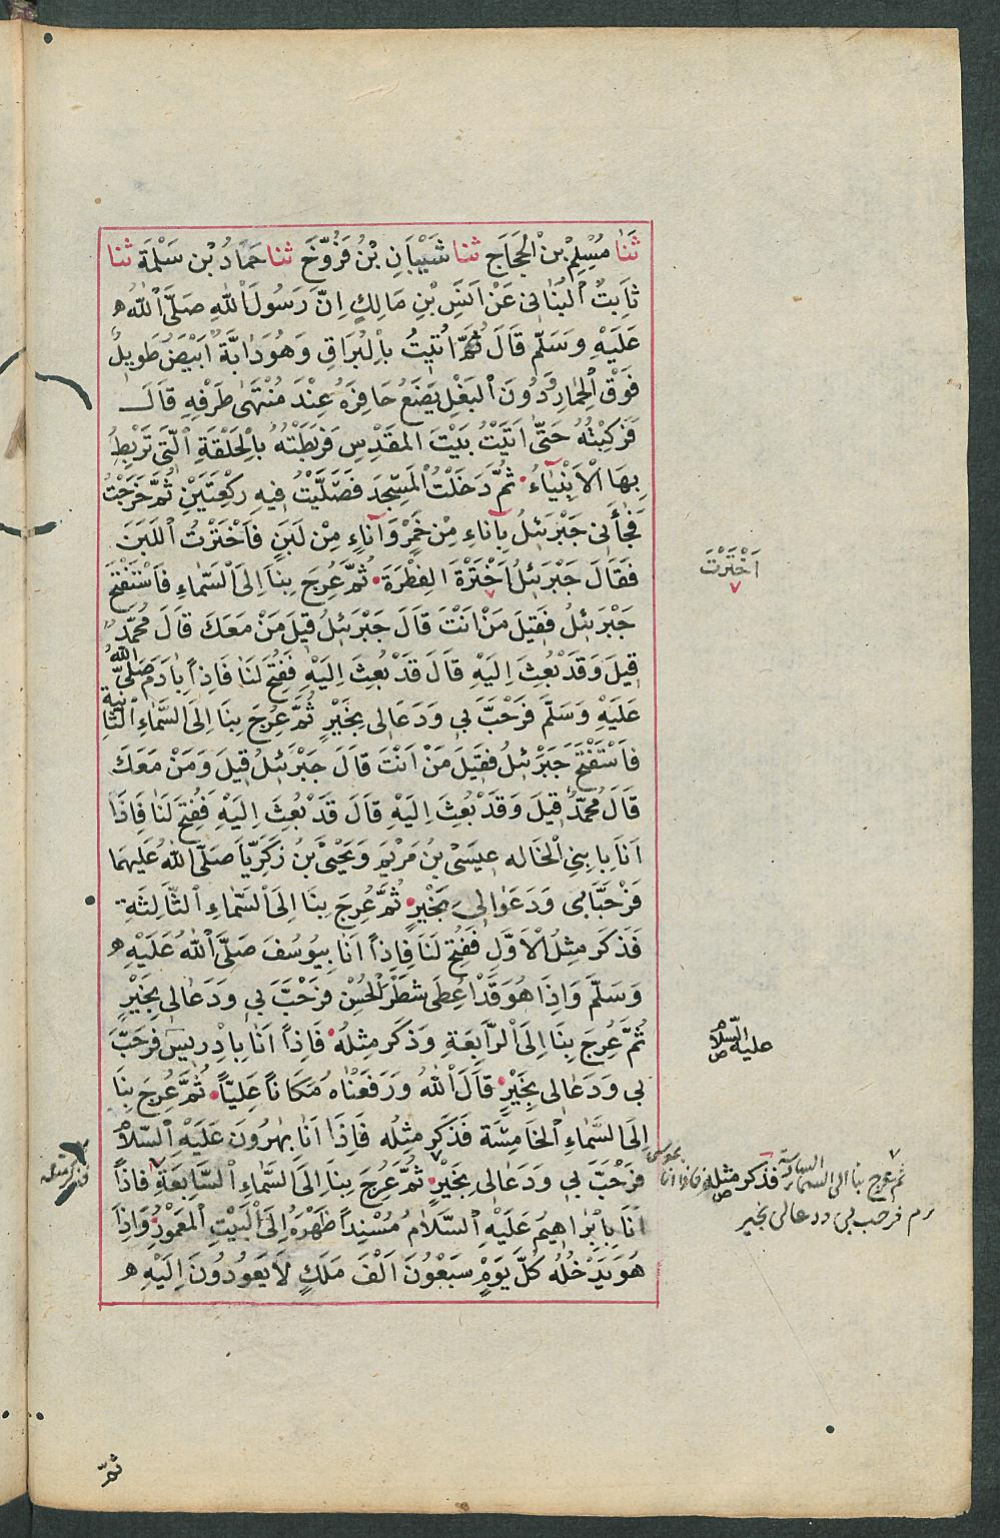 ثَنٰا مُسْلِمْ بنْ الْحَجَاج ثنا شَيْبَانِ بْنُ فَرُوّخَ ثنا حَمادُ بْن سَلْمَة ثنا
ثاَبِتُ الْبُنَانى عَنْ اَنَسْ بْنِ مَالِكٍ اِنّ رَسُولَ اللهِ صَلَّى اللهُ
عَلَيْهِ وَسَلّم قَالَ ثُمَّ اُتيتُ باِلبُرَاقِ وَهُوَ دَابَّةٌ اَبْيَضَ طَويلٌ
فَوْقَ الْحِمارِ وَدُونَ الْبَغْلِ يَضَعُ حَافِرَهُ عِنْدَ مُنْتَهٰى طَرْفِهِ قَالَ
فَرَكِبْتُهُ حَتّٰى اَتَيْتُ بَيْتَ المقَدْسِ فَرَبَطْتْهُ بالْحَلْقَةِ الّتَى تَرْبِطُ
بِهَا الْاَنْبِيَآءُ ثُمَّ دَخَلْتُ الْمَسْجِدَ فَصَلَّيْتُ فيهِ رَكِعْتَيْنِ ثُمَّ خَرَجْتُ
فَجأَنى جَبْرَئِلُ بِآناءِ مِنْ خَمْرْ وَآناءٍ مِنْ لَبَنٍ فاَخْتَرْتُ اللَبَنَ
فَقَالَ جَبْرَئِلُ اَخْتَرْةَ الفِطْرَة ثُمَّ عَرِجَ بِناَ اِلىَ السَّماءِ فَاسْتَفْتَحَ
اَخْتَرْتَ
جَبْرَئلُ فَقيلَ مَنْ اَنْتَ قَالَ جَبْرَئلُ قيلَ مَنْ مَعَكَ قاَلَ مُحَمّدٌ
قيلَ وَقَدْ بُعِثَ اِلَيْهِ قاَلَ قَدْ بُعِثَ اِلَيْهِ فَفُتِحَ لَنٰا فَاِذاً بِاٰدَمَ صَلىَّ اللهُ
عَلَيْهِ وَسَلّمَ فَرَحَّبَ بي وَدَعَالى بِخَيْرٍ ثُمَّ عُرِجَ بِنَا اِلىَ السَّمٰاءِ الثّانِية
فاَسْتَفْتَحَ جَبْرَئِلُ فَقيلَ مَنْ اَنْتَ قَالَ جَبْرَئِلُ قيلَ وَمَنْ مَعَكَ
قَالَ مُحَمَّدٌ قيلَ وَقَدْ بُعِثَ اِلَيْهِ قاَلَ قَدْ بُعِثَ اِلَيْهِ فَفُتِحَ لَنٰا فَاِذَا
اَناَ بابنى الْخاله عيسٰى بْن مَرْيَمَ وَيَحْيٰى بْنُ زَكَرّياَ صَلَّى اللهُ عَلَيهمَا
فَرَحَّبَابى وَدَعَوالى بِخَيْرٍ ثُمَّ عُرِجَ بِنَا اِلىَ السَّمٰاءِ الثَّالِثَةِ
فَذَكَر مِثلُ الْاَوَّلِ فَفُتِحَ لَنَا فِاِذاً اَنَا بِيُوسُفَ صَلَّى اللهُ عَلَيْهِ
وَسَلّمَ وَاِذَا هُوَ قَدْ اعُطِىَ شطَرْ الْحُسْنَ فَرَحَّبَ بي وَدَعَالى بِخَيْرٍ
ثُمَّ عُرِجَ بِنَا اِلىَ الرَّابِعَةِ وَذَكَر مِثلُهُ فَاِذاً اَنَا باِدْريسَ فَرَحَّبَ
عليه السّلام صح
بي وَدَعٰالى بِخَيْرٍ قاَلَ اللهُ وَرَفَعْنٰاه مَكَاناً عَلِيّاً ثُمَّ عُرِجَ بِنَا
اِلىَ السَّماءِ الخَامِسَة فَذَكَر مِثلِه فَاِذَا اَنَا بهٰرُونَ عَلَيْهِ السّلامُ
فَرَحَّبَ بي وَدَعَالى بِخَيْرٍ ثُمَّ عُرِجَ بِنَا اِلىَ السَّمٰاءِ السّابِعَةِ فَاذاً
ثم عرج بنا الى السماء السادسة فذكر مثله فاذا انا بموسى
فرحب بى ودعالى بخير
اَنَا باِبْراهِيمُ عَلَيْهِ السَّلَامُ مُسْنِداً ظَهْرَهُ اِلىَ الْبَيْتِ الْمَعْمُورِ وَاِذَا
هُوَ يَدْخُلُهُ كُلَّ يَومٍ سَبْعُونَ اَلْفَ مَلَكٍ لَا يَعُودُونَ اِلَيْهِ
ثمّ